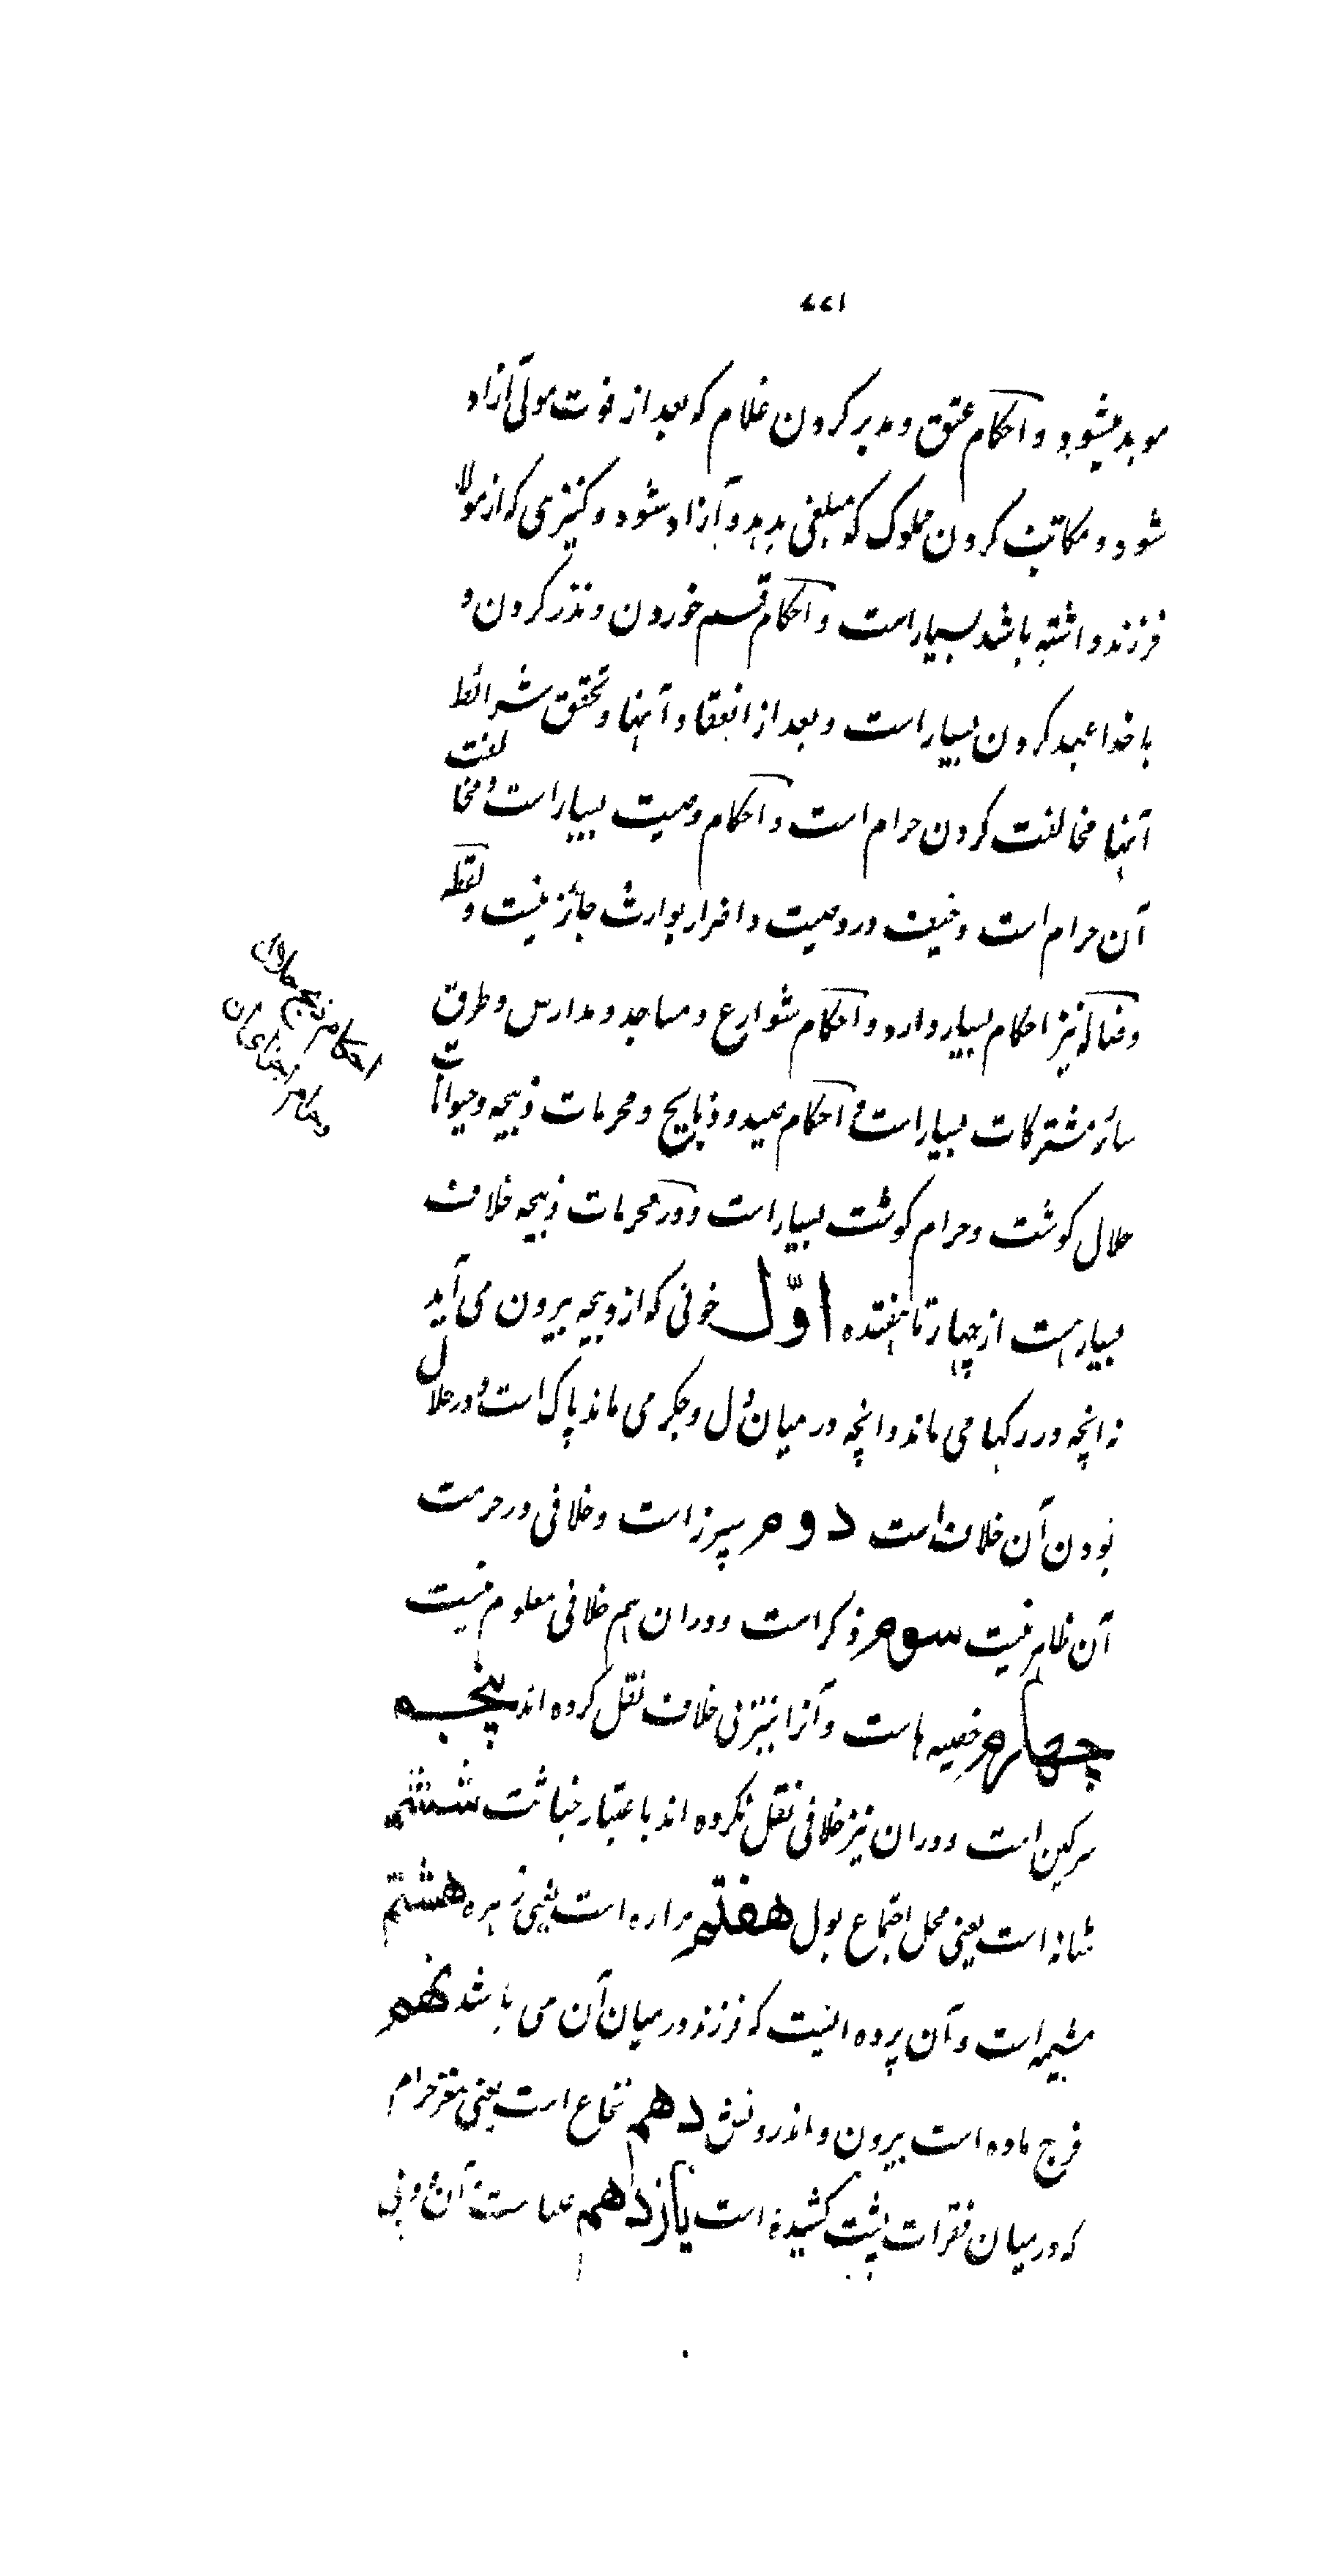 ۶۶۱
موبد میشود و احکام عتق و مدبر کردن غلام که بعد از فوت مولی آزاد
شود و مکاتب کردن مملوک که مبلغی بدهد و آزاد شود و کنیزی که از مولا
فرزند داشته باشد بسیار است و احکام قسم خوردن و نذر کردن و
با خدا عهد کردن بسیار است و بعد از انعقاد آنها و تحقق شرائط
آنها مخالفت کردن حرام است و احکام وصیت بسیار است و مخالفت
آن حرام است و حیف در وصیت و اقرار بوارث جائز نیست و لقطه
و ضاله نیز احکام بسیار دارد و احکام شوارع و مساجد و مدارس و طرق
سائر مشترکات بسیار است و احکام صید و ذبایح و محرمات ذبیحه و حیوانات
حلال گوشت و حرام گوشت بسیار است و در محرمات ذبیحه خلاف
بسیار است از چهار تا هفتده اوّل خونی که از ذبیحه بیرون می آید
نه انچه در رگها می ماند و انچه در میان دل و جگر می ماند پاک است و در حلال
بودن آن خلاف است دوم سپرز است و خلافی در حرمت
آن ظاهر نیست سوم ذکر است و در ان هم خلافی معلوم نیست
چهارم خصیه هاست و آنرا نیز بی خلاف نقل کرده اند پنجم
سرگین است و در ان نیز خلافی نقل نکرده اند باعتبار خباثت ششم
مثانه است یعنی محل اجتماع بول هفتم مراره است یعنی زهره هشتم
مشیمه است و آن پرده ایست که فرزند در میان آن می باشد نهم
فرج ماده است بیرون و اندرونش دهم نخاع است یعنی مغز حرام
که در میان فقرات پشت کشیده است یازدهم عصاست آن دو پی
احکام ذبح حلال
و حرام اجزای ان